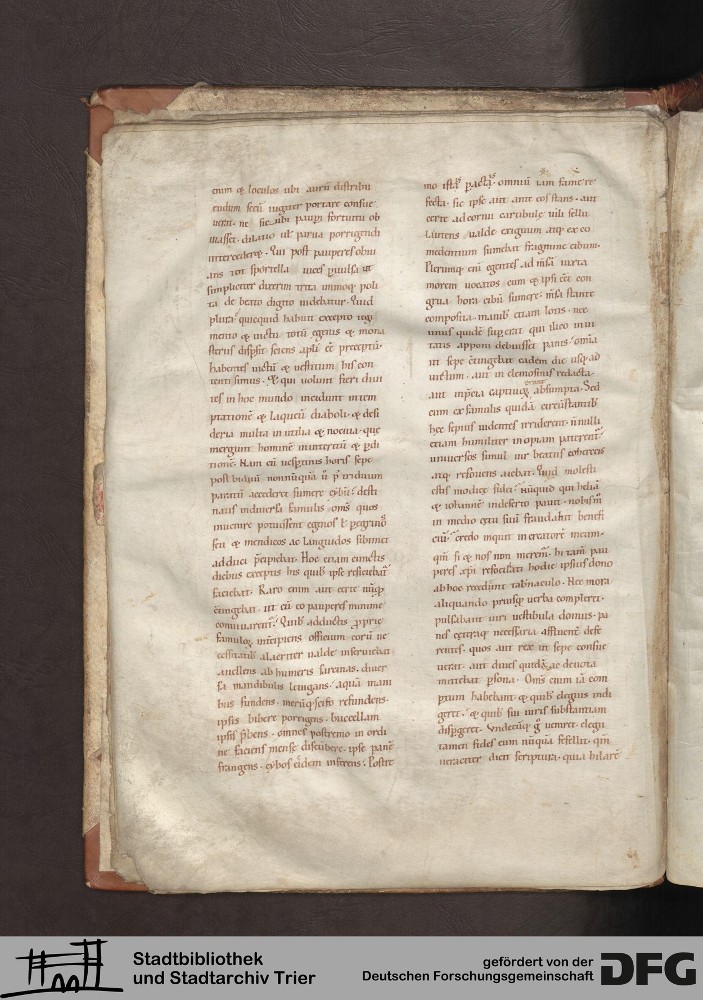 enim & loculos ubi aurū distribu
endum secū iugiter portare consue
uerat. ne sic ubi paupi fortuitu ob
uiasset. dilatio ut parua porrigendi
intercederet. Qui post pauperes obui
simpliciter dixerim trita immoq; poli
ta de beato digito uidebatur. Quid
plura? quicquid habuit excepto tegi
mento & uictu totū egenis & mona
steriis dispsit sciens apli cē preceptū.
habentes uictū & uestitum his con
tenti simus. Et qui uolunt fieri diui
tes in hoc mundo incidunt in tem
ptationē & laqueū diaboli. & desi
deria multa inutilia & nociua. que
mergunt hominē in interitū & pdi
tionē. Nam cū uesptinis horis sepe
post biduū nonnūquā ū p triduum
paratū accederet sumere cybū. desti
natis in diuersa famulis. oms quos
inuenire potuissent egenos ł pegrinos
seu & mendicos ac languidos sibimet
adduci pcipiebat. Hoc etiam cunctis
diebus exceptis his quib; ipse reficiebat
faciebat. Raro enim aut certe nūq;
cōtingebat. ut cū eo pauperes minime
conuiuarent. Quib; adductis pprie
famuloȝ incipiens officium eorū ne
cessitatib; alacriter ualde inseruiebat
auellens ab humeris sarcinas. diuer
sa mandibulis leuigans. aquā mani
bus fundens. merūq; scifo refundens.
ipsis bibere porrigens. buccellam
ipsis pbens. omnes postremo in ordi
ne faciens mense discubere. ipse panē
frangens. cybos eidem inferens. Postre
mo istis pactis. omniū iam fame re
fecta. sic ipse aut ante eos stans. aut
certe ad eorum uili sella
ualde exiguum atq; ex eo
sumebat fragmine cibum.
Plerumq; cni egentes ad msā iuxta
morem uocatos cum & ipsi cēt con
grua hora cibū sumere. msa stante
composita. manib; etiam lotis. nec
unus quidē supерat qui ilico in ui
tatis apponi debuisset panis. omia
ut sepe cōtingebat eadem die usq; ad
unctum. aut in elemosinis redacta.
aut inpeia captiuoȝ erant absumpta. Sed
cum ex famulis quidā circūstantib;
hęc sepius uidentes irriderent. nnulli
etiam humiliter inopiam paterent
uniuersos simul uir beatus cohercens
atq; refouens aiebat. Quid molesti
estis modice fidei? nūquid qui heliā
& iohannē in deserto pauit. nobism
in medio cętu suū fraudabit benefi
ciū. credo inquit in creatorē meum.
qm si & nos non meremr. hi tam pau
peres xpi refocilati hodie ipsius dono
ab hoc recedunt tabnaculo. Nec mora
aliquando priusq; uerba compleret.
pulsabant uiri uestibula domus. pa
nes cęteraq; necessaria affluent defe
rentes. quos aut rex ut sepe consue
uerat. aut diues quidā ac deuota
mittebat psona. Oms enim iā com
ptum habebant & quib; elegius indi
geret. & quib; sui iuris substantiam
dispgeret. Undecūq; g ueniret. elegii
tamen fides eum nūquā fefellit. qm
ueraciter dicit scriptura. quia hilarē
Stadtbibliothek
und Stadtarchiv Trier
gefördert von der
Deutschen Forschungsgemeinschaft
DFG